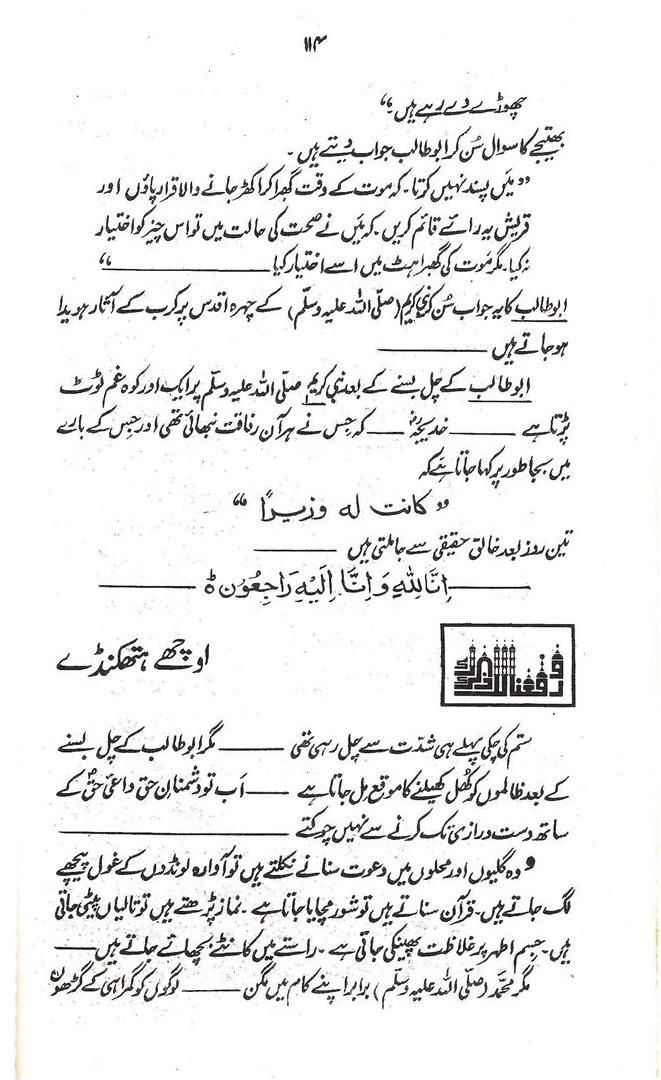 ۱۱۴
چھوڑے دے رہے ہیں۔“
بھتیجے کا سوال سُن کر ابو طالب جواب دیتے ہیں۔
”میں پسند نہیں کرتا۔ کہ موت کے وقت گھبرا کر اکھڑ جانے والا قرار پاؤں اور
قریش یہ رائے قائم کریں۔ کہ میں نے صحت کی حالت میں تو اس چیز کو اختیار
نہ کیا۔ مگر موت کی گھبراہٹ میں اسے اختیار کیا ———“
ابو طالب کا یہ جواب سُن کر نبی کریم (صلّی اللہ علیہ وسلّم) کے چہرہ اقدس پر کرب کے آثار ہویدا
ہو جاتے ہیں ———
ابو طالب کے چل بسنے کے بعد نبی کریم صلّی اللہ علیہ وسلّم پر ایک اور کوہ غم ٹوٹ
پڑتا ہے ——— خدیجہؓ —— کہ جس نے ہر آن رفاقت نبھائی تھی اور جس کے بارے
میں بجا طور پر کہا جاتا ہے کہ
”کانت لہ وزیرًا“
تین روز بعد خالق حقیقی سے جا ملتی ہیں ———
——— اِنَّا لِلّٰہِ وَ اِنَّا اِلَیْہِ رَاجِعُوْن ہ ———
ورفعنا لک ذکرک
اوچھے ہتھکنڈے
ستم کی چکی پہلے ہی شدّت سے چل رہی تھی ——— مگر ابو طالب کے چل بسنے
کے بعد ظالموں کو کُھل کھیلنے کا موقع مل جاتا ہے —— اَب تو دشمنانِ حق داعیٔ حق کے
ساتھ دست درازی تک کرنے سے نہیں چوکتے ———
وہ گلیوں اور محلوں میں دعوت سنانے نکلتے ہیں تو آوارہ لونڈوں کے غول پیچھے
لگ جاتے ہیں۔ قرآن سناتے ہیں تو شور مچایا جاتا ہے۔ نماز پڑھتے ہیں تو تالیاں پیٹی جاتی
ہیں۔ جسم اطہر پر غلاظت پھینکی جاتی ہے۔ راستے میں کانٹے بچھائے جاتے ہیں ——
مگر محمّد (صلّی اللہ علیہ وسلّم) برابر اپنے کام میں مگن ——— لوگوں کو گمراہی کے گڑھوں